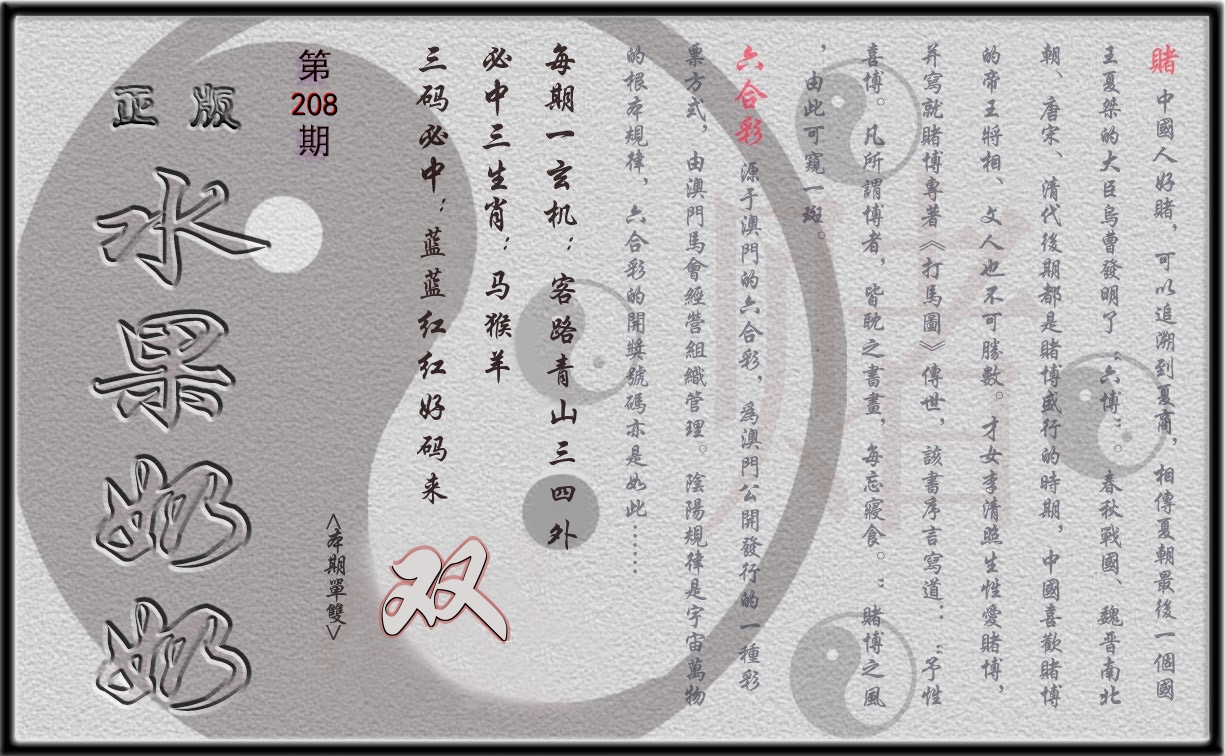 賭 中國人好賭，可以追溯到夏商，相傳夏朝最後一個國
王夏桀的大臣烏曹發明了“六博”。春秋戰國、魏晋南北
朝、唐宋、清代後期都是賭博盛行的時期，中國喜歡賭博
的帝王將相、文人也不可勝數。才女李清照生性愛賭博，
并寫就賭博專著《打馬圖》傳世，該書序言寫道：“予性
喜博。凡所謂博者，皆耽之書畫，每忘寢食。”賭博之風
，由此可窺一斑。
六合彩 源于澳門的六合彩，爲澳門公開發行的一種彩
票方式，由澳門馬會經營組織管理。陰陽規律是宇宙萬物
的根本規律，六合彩的開獎號碼亦是如此……
每期一玄机：客路青山三四外
必中三生肖：马猴羊
三码必中：蓝蓝红红好码来
双
<本期單雙>
第208期
正版
水果奶奶